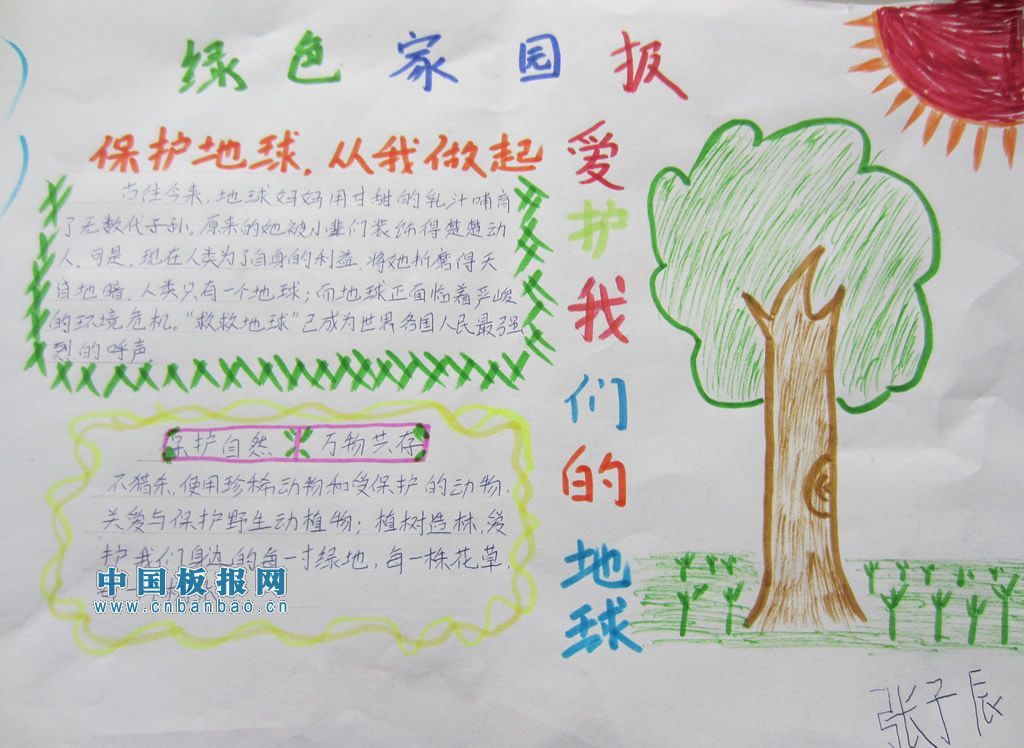 绿色家园报
保护地球，从我做起
古往今来，地球妈妈用甘甜的乳汁哺育
了无数代子孙。原来的她被小辈们装饰得楚楚动
人。可是，现在人类为了自身的利益，将她折磨得天
昏地暗。人类只有一个地球；而地球正面临着严峻
的环境危机。“救救地球”已成为世界各国人民最强
烈的呼声。
保护自然 万物共存
不猎杀、使用珍稀动物和受保护的动物，
关爱与保护野生动植物；植树造林，爱
护我们身边的每一寸绿地，每一株花草，
中国板报网
www.cnbanbao.cn
爱护我们的地球
张子辰